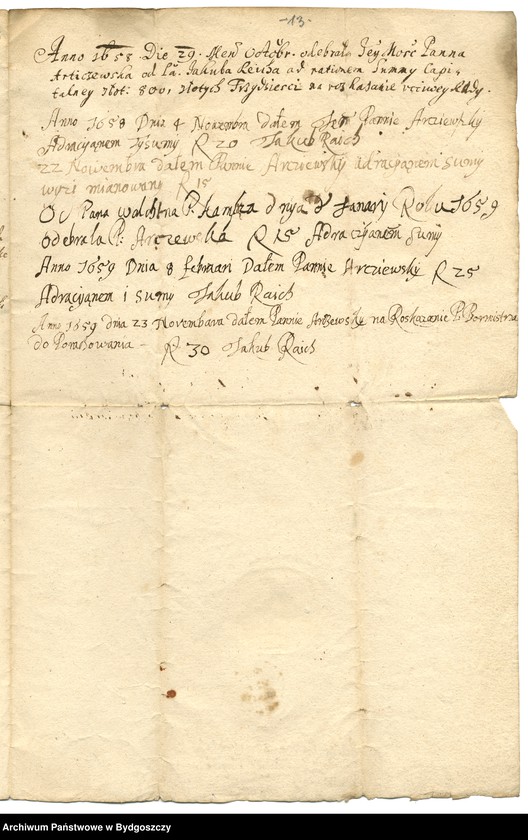 -13-
Anno 1658 Die 29. Mens Octobr. odebrała Jey Mosc Panna
Articzewska od Pa. Jakuba Reicha ad rationem Summy Capi-
talney złot: 800, złotych Trzydzieści na roskazanie
Anno 1658 Dnia 4 Novembra dałem Pannie Arciewsky
Adracyjanem zysumy R 20 Jakub Raich
22 Nowembra dałem Pannie Arciewsky adracyjanem sumy
wyzi mianowany R 15
Od Pana P. dnya 8 Janary Roku 1659
Odebrała P: Arczewska R 15 Adracyjanem Sumy
Anno 1659 Dnia 8 februari Dałem Pannie Arciewsky R 25
Adracyjanem i sumy Jakub Raich
Anno 1659 dnia 23 Novembara dałem Pannie Artzewsky na Roskazanie P. Bormistrza
do Porachowania - R 30 Jakub Raich
Archiwum Państwowe w Bydgoszczy